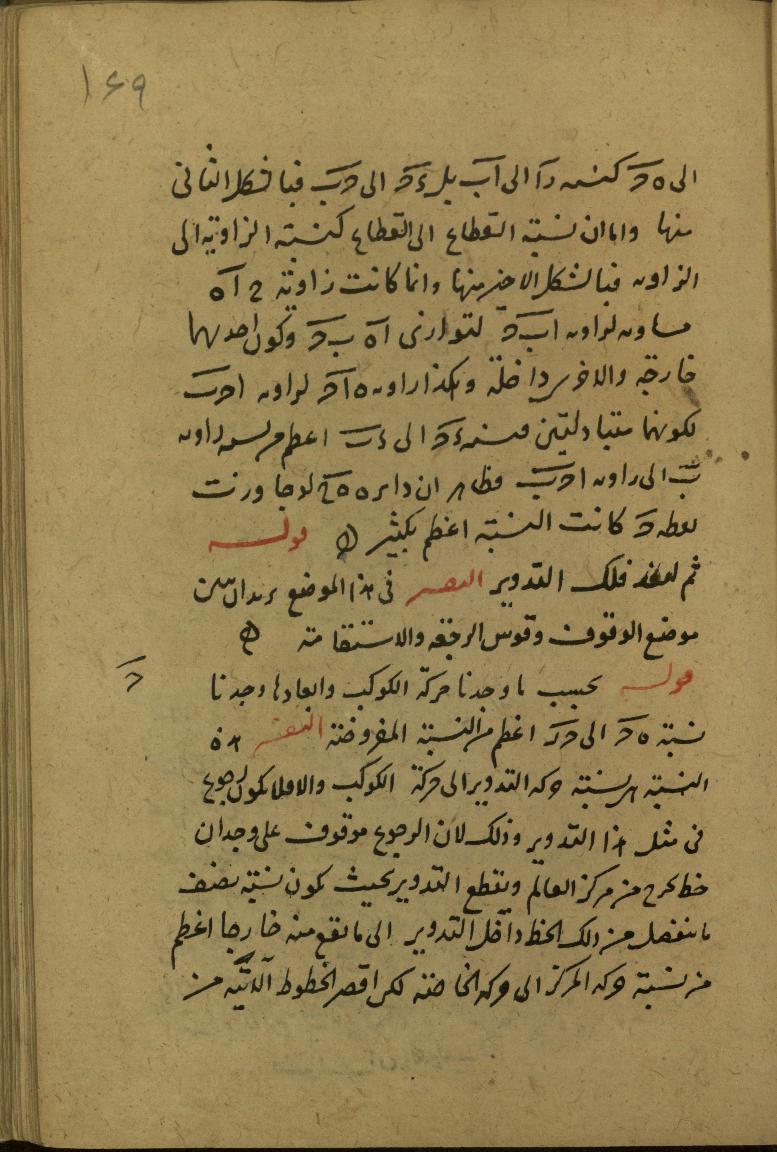 ١٤٩
الى ه ح كنسبة د ا الى ا ب بل ء ح الى ح ب فبا لشكل الثانى
منها واما ان نسبة القطاع الى القطاع كنسبة الزاوية الى
الزاويه فبالشكل الاخير منها وانما كانت زاوية ح ا ه
مساويه لزاويه ا ب ح لتوازى ا ه ب ح وكون احديهما
خارجة والاخرى داخلة وهكذا زاويه ه ا ح لزاويه ا ح ب
لكونهما متبادلتين فنسبة ء ح الى ء ب اعظم من نسبه زاويه
ب الى زاويه ا ح ب فظاهر ان دايره ه ح لو جاوزت
نقطه ح كانت النسبة اعظم بكثير ه قوله
ثم لعقد فلك التدوير التفسير فى هذا الموضع يريد ان يبين
موضع الوقوف وقوس الرجعه والاستقامة ه
قوله بحسب ما وجدنا حركة الكوكب وابعادها وجدنا
نسبة ه ح الى ح ك اعظم من النسبة المفروضة التفسير هذه
النسبة هى نسبة حركه التدوير الى حركة الكوكب والا فلا يكون رجوع
فى مثل هذا التدوير وذلك لان الرجوع موقوف على وجدان
خط يخرج من مركز العالم ويقطع التدوير بحيث يكون نسبة نصف
ما ينفصل من ذلك الخط داخل التدوير الى ما يقع منه خارجا اعظم
من نسبة حركه المركز الى حركه الخاصة لكن اقصر الخطوط الآتية من